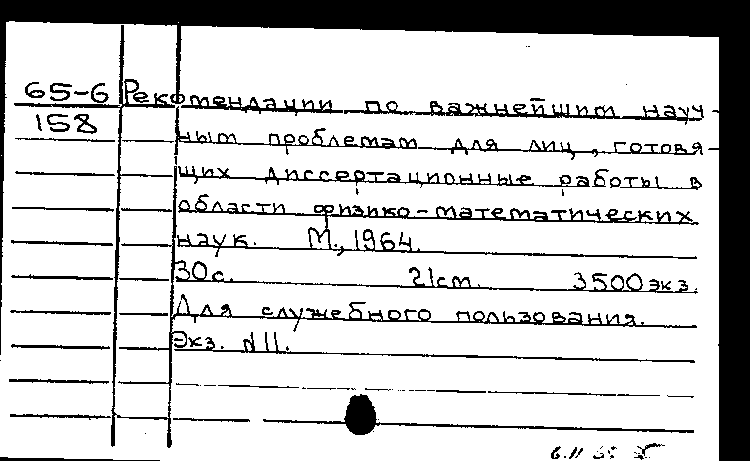 65-6 Рекомендации по важнейшим науч-
158 ным проблемам для лиц, готовя-
щих диссертационные работы в
области физико-математических
наук. М., 1964.
30с. 21см. 3500 экз.
Для служебного пользования.
Экз. №11.